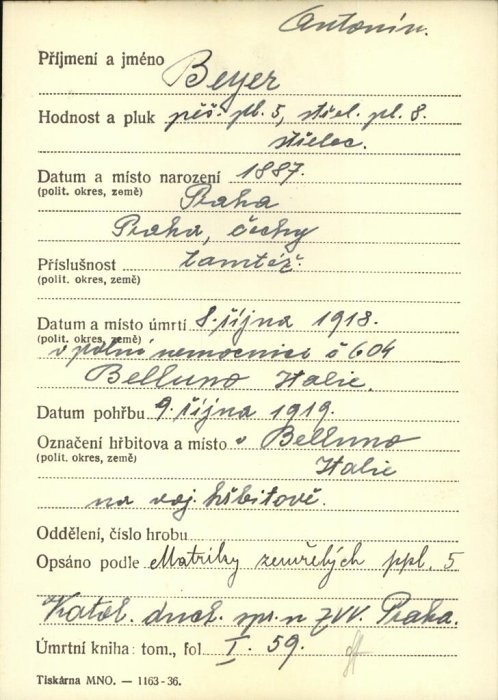 Antonín.
Příjmení a jméno Beyer
Hodnost a pluk pěš. pl. 5, střel. pl. 8.
střelec.
Datum a místo narození 1887.
(polit. okres, země) Praha
Praha, čechy
Příslušnost tamtéž.
(polit. okres, země)
Datum a místo úmrtí 8. října 1918.
(polit. okres, země)
v polní nemocnici č 604
Belluno Italie.
Datum pohřbu 9. října 1919.
Označení hřbitova a místo v Belluno
(polit. okres, země) Italie
na voj. hřbitově.
Oddělení, číslo hrobu
Opsáno podle Matriky zemřelých ppl. 5
Katol. duch. spr. u ZVV. Praha.
Úmrtní kniha: tom., fol I. 59.
Tiskárna MNO. — 1163-36.